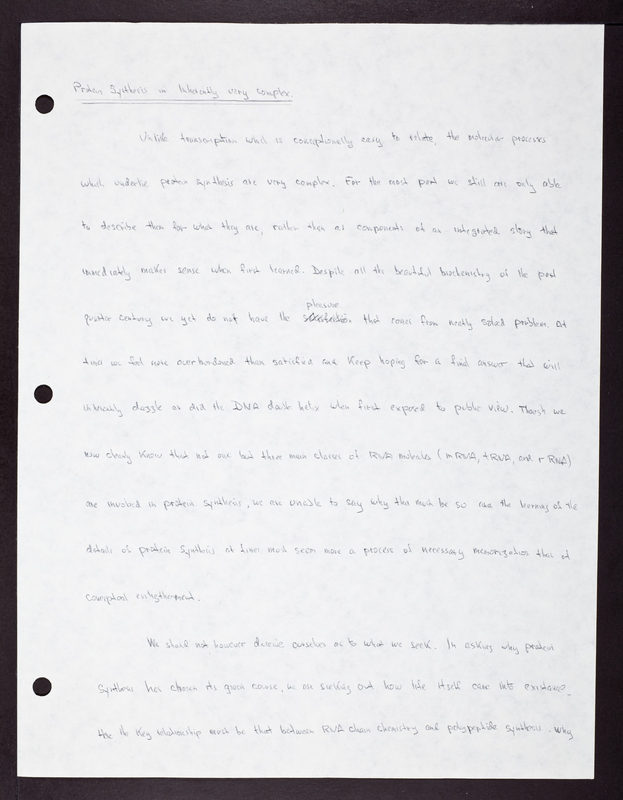 Protein Synthesis is Inherently very complex.
Unlike transcription which is conceptionally easy to relate, the molecular processes
which underlie protein synthesis are very complex. For the most part we still are only able
to describe them for what they are, rather than as components of an integrated story that
immediately makes sense when first learned. Despite all the beautiful biochemistry of the past
pleasure
quarter century we yet do not have the satisfaction that comes from neatly solved problem. At
times we feel more overburdened than satisfied and keep hoping for a final answer that will
inherently dazzle as did the DNA double helix when first exposed to public view. Though we
now clearly know that not one but three main classes of RNA molecules (mRNA, tRNA, and rRNA)
are involved in protein synthesis, we are unable to say why this must be so and the learning of the
details of protein synthesis at times must seem more a process of necessary memorization than of
conceptual enlightenment.
We should not however deceive ourselves as to what we seek. In asking why protein
synthesis has chosen its given course, we are seeking out how life itself came into existence.
the key relationship must be that between RNA chain chemistry and polypeptide synthesis. Why